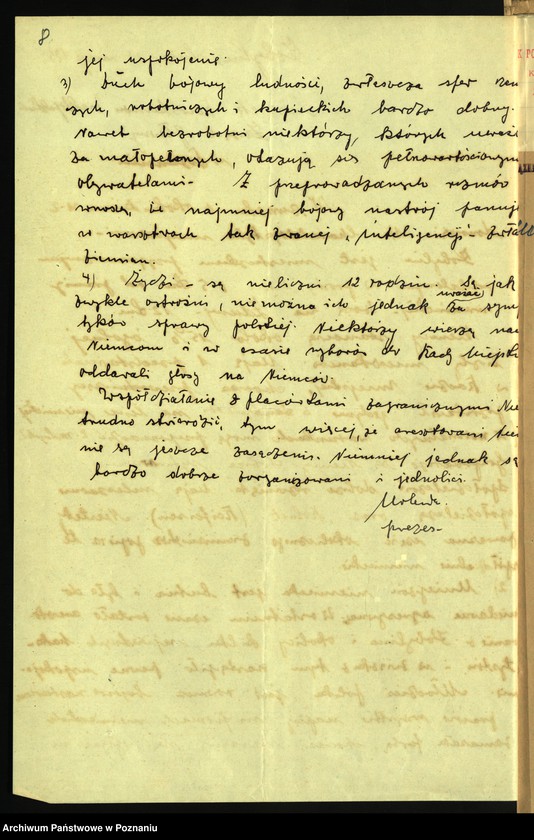 8
jej uspokojenie.
3) Duch bojowy ludności, zwłaszcza sfer rzem
czych, robotniczych i kupieckich bardzo dobry.
Nawet bezrobotni niektórzy, których uważa
za małopełonych, okazują się pełnowartościowym
obywatelami. Z przeprowadzanych rozmów
wnoszę, że najmniej bojowy nastrój panuje
w warstwach tak zwanej "inteligencji"
ziemian.
4) Żydzi - są nieliczni 12 rodzin. Są jak
zwykle ostrożni, nie można ich jednak uważać za symp
tyków sprawy polskiej. Niektórzy wierzą na
Niemcom i w czasie wyborów do Rady Miejski
oddawali głosy na Niemców.
Współdziałanie z placówkami zagranicznymi Nie
trudno stwierdzić, tym więcej, że aresztowani
nie są jeszcze zasądzeni. Niemniej jednak są
bardzo dobrze zorganizowani i jednolici.
prezes
Archiwum Państwowe w Poznaniu